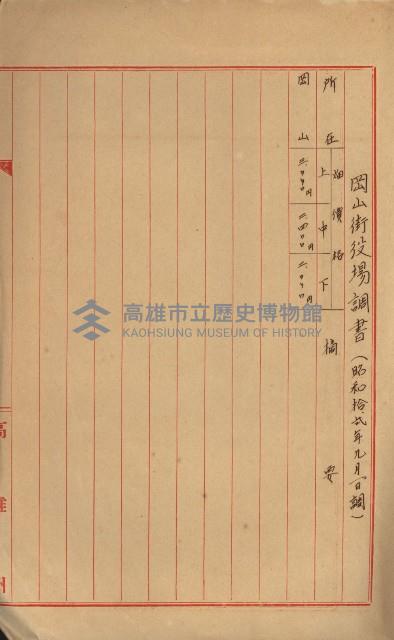 岡山街役場調書（昭和拾弐年九月一日調）
所在
畑價格
上 中 下
摘要
岡山
円
二、四〇〇円
円
高雄州
高雄市立歷史博物館
KAOHSIUNG MUSEUM OF HISTORY